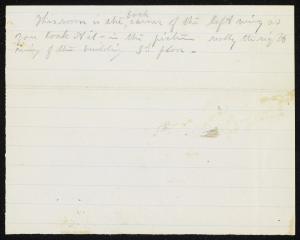 back
This room is the corner of the left wing as
you look at it - in the picture really the right
wing of the building 3d floor -